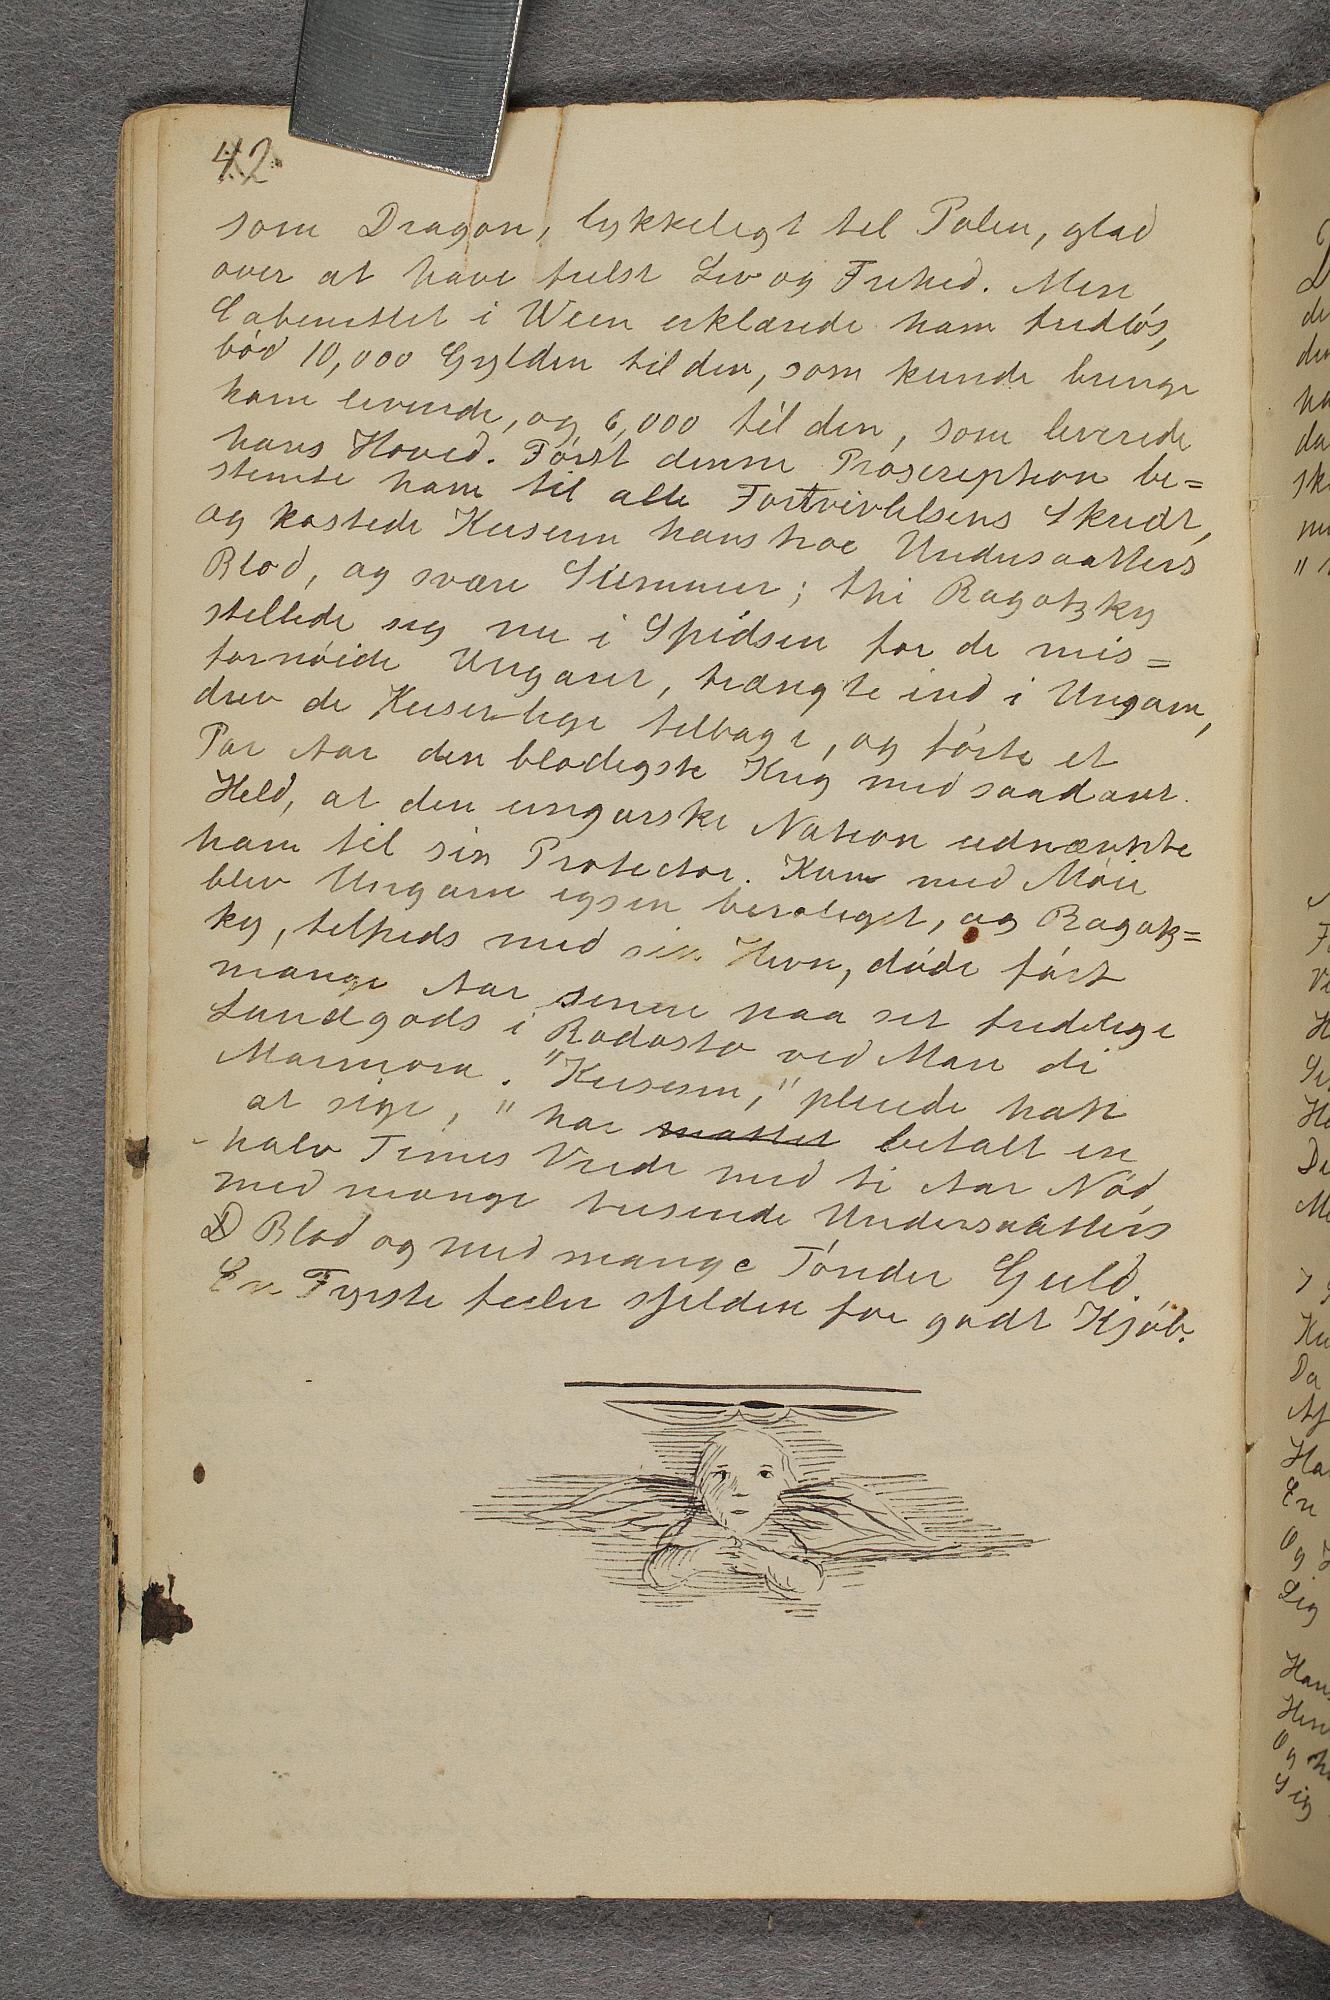 42
som Dragon, lykkeligt til Polen, glad
over at have frelst Liv og Frihed. Men
Cabinettet i Wien erklærede ham fredløs,
bød 10,000 Gylden til den, som kunde bringe
ham levende, og 6,000 til den, som leverede
hans Hoved. Først denne Proscription be=
stemte ham til alle Fortvivlelsens Skridt,
og kostede Keiseren hans troe Undersaatters
Blod, og svære Summer; thi Ragotzky
stillede sig nu i Spidsen for de mis=
fornøide Ungarer, trængte ind i Ungarn,
drev de Keiserlige tilbage, og førte et
Par Aar den blodigste Krig med saadant
Held, at den ungarske Nation udnævnte
ham til sin Protector. Kun med Møie
blev Ungarn igjen beroliget, og Ragotz=
ky, tilfreds med sin Hevn, døde først
mange Aar senere paa sit fredelige
Landgods i Rodosto ved Mare di
Marmora. "Keiseren," pleiede han
at sige, "har maattet betalt en
halv Times Vrede med ti Aar Nød,
med mange tusende Undersaatters
D Blod og med mange Tønder Guld.
En Fyrste feiler sjelden for godt Kjøb.